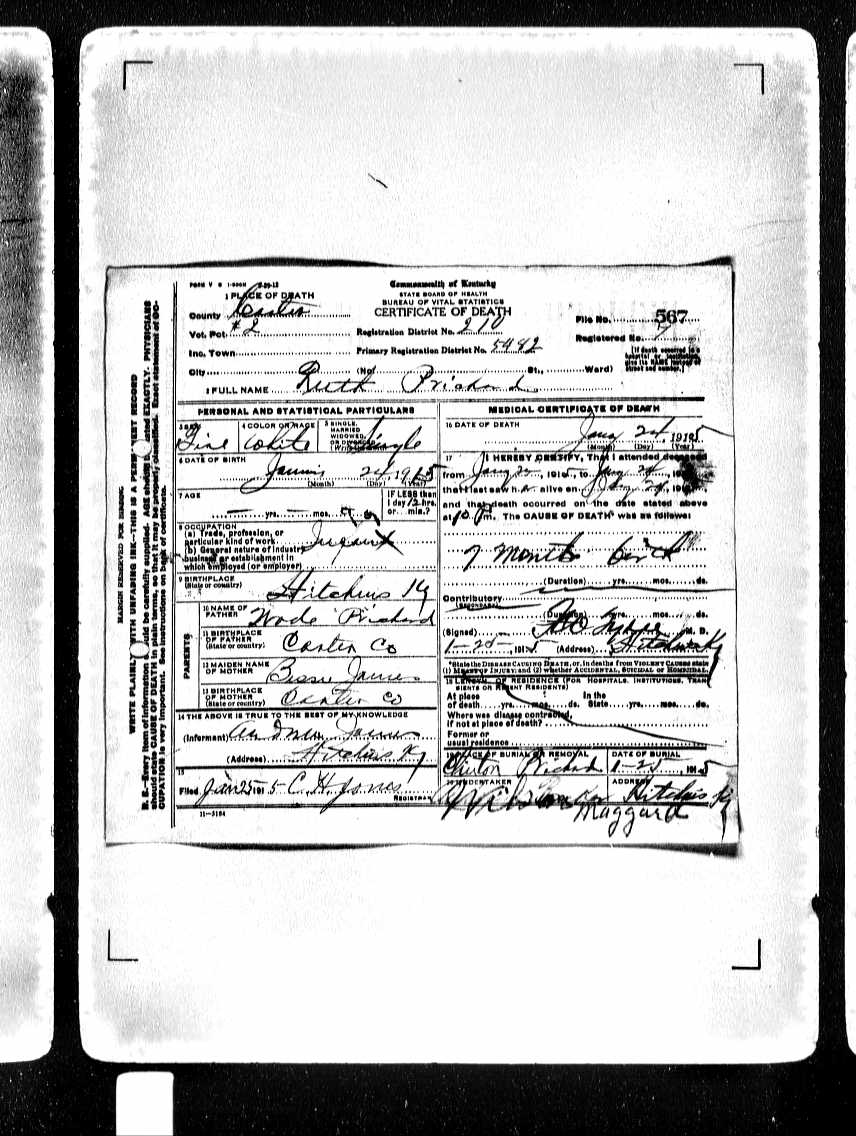 Commonwealth of Kentucky
STATE BOARD OF HEALTH
BUREAU OF VITAL STATISTICS
CERTIFICATE OF DEATH
1 PLACE OF DEATH
County Carter
Vot. Pct #2
Inc. Town
City (No. St., Ward)
Registration District No. 210
Primary Registration District No. 5482
File No. 567
Registered No. 7
[If death occurred in a hospital or institution, give its NAME instead of street and number.]
2 FULL NAME Ruth Prichard
PERSONAL AND STATISTICAL PARTICULARS
3 SEX
4 COLOR OR RACE White
5 SINGLE, MARRIED, WIDOWED, OR DIVORCED Single
6 DATE OF BIRTH 24, 1915
(Month) (Day) (Year)
7 AGE
yrs. mos.
IF LESS than 1 day 12 hrs. or min.?
8 OCCUPATION
(a) Trade, profession, or
particular kind of work
(b) General nature of industry
business or establishment in
which employed (or employer)
Infant
9 BIRTHPLACE
(State or country) Hitchins Ky
PARENTS
10 NAME OF FATHER Wade Prichard
11 BIRTHPLACE OF FATHER
(State or country) Carter Co
12 MAIDEN NAME OF MOTHER James
13 BIRTHPLACE OF MOTHER
(State or country) Carter Co
14 THE ABOVE IS TRUE TO THE BEST OF MY KNOWLEDGE
(Informant) James
(Address) Hitchins Ky
15
Filed Jan 25 1915 C. H. Jones
REGISTRAR
11-3184
MEDICAL CERTIFICATE OF DEATH
16 DATE OF DEATH Jany 24, 1915
(Month) (Day) (Year)
17 I HEREBY CERTIFY, That I attended deceased
from Jany 22, 1915, to Jany 24, 191
that I last saw h alive on Jany 24, 191
and that death occurred on the date stated above
at 10 P m. The CAUSE OF DEATH was as follows:
7 Months birth
(Duration) yrs. mos. ds.
Contributory
(SECONDARY)
(Duration) yrs. mos. ds.
(Signed) M. D.
1-25-1915 (Address) Hitchins Ky
*State the DISEASE CAUSING DEATH, or, in deaths from VIOLENT CAUSES state
(1) MEANS OF INJURY; and (2) whether ACCIDENTAL, SUICIDAL OR HOMICIDAL.
18 LENGTH OF RESIDENCE (FOR HOSPITALS, INSTITUTIONS, TRANSIENTS OR RECENT RESIDENTS)
At place of death yrs. mos. ds. In the State yrs. mos. ds.
Where was disease contracted,
if not at place of death?
Former or
usual residence
19 PLACE OF BURIAL OR REMOVAL
DATE OF BURIAL
Prichard 1-25-, 1915
20 UNDERTAKER
ADDRESS
Hitchins Ky
Maggard
MARGIN RESERVED FOR BINDING
WRITE PLAINLY WITH UNFADING INK—THIS IS A PERMANENT RECORD
N. B.—Every item of information should be carefully supplied. AGE should be stated EXACTLY. PHYSICIANS
should state CAUSE OF DEATH in plain terms, so that it may be properly classified. Exact statement of OC-
CUPATION is very important. See instructions on back of certificate.